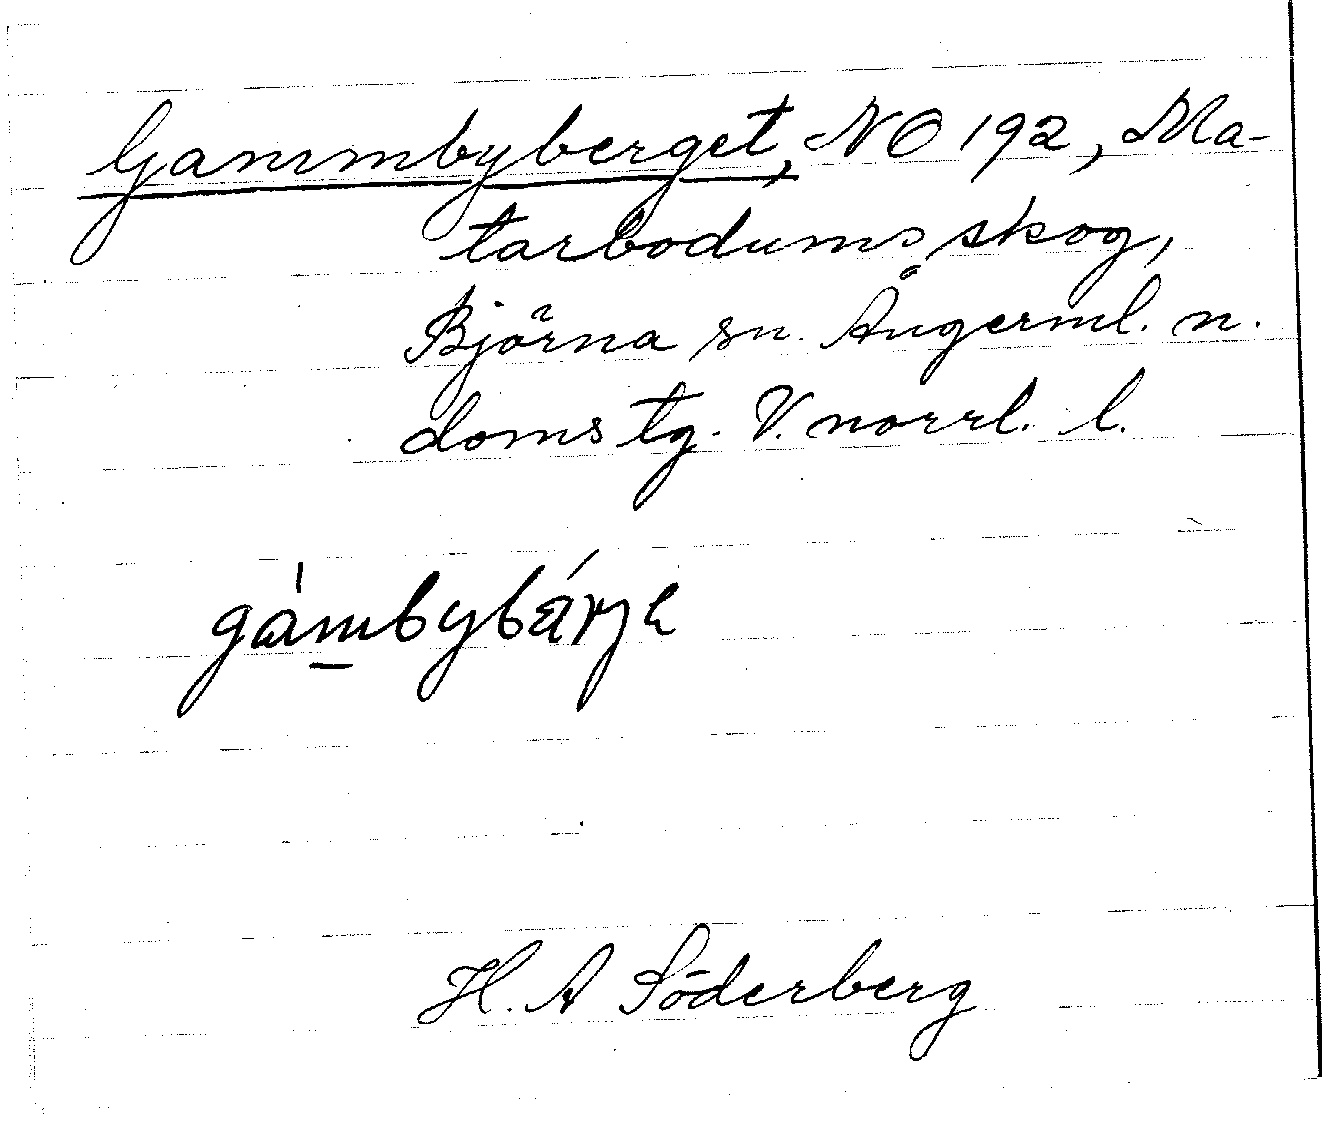 Gammbyberget, NO 192, Ma-
tarbodums skog,
Björna sn. Ångerml. n.
doms tg. V. norrl. l.
gámbybárje
H. A Söderberg